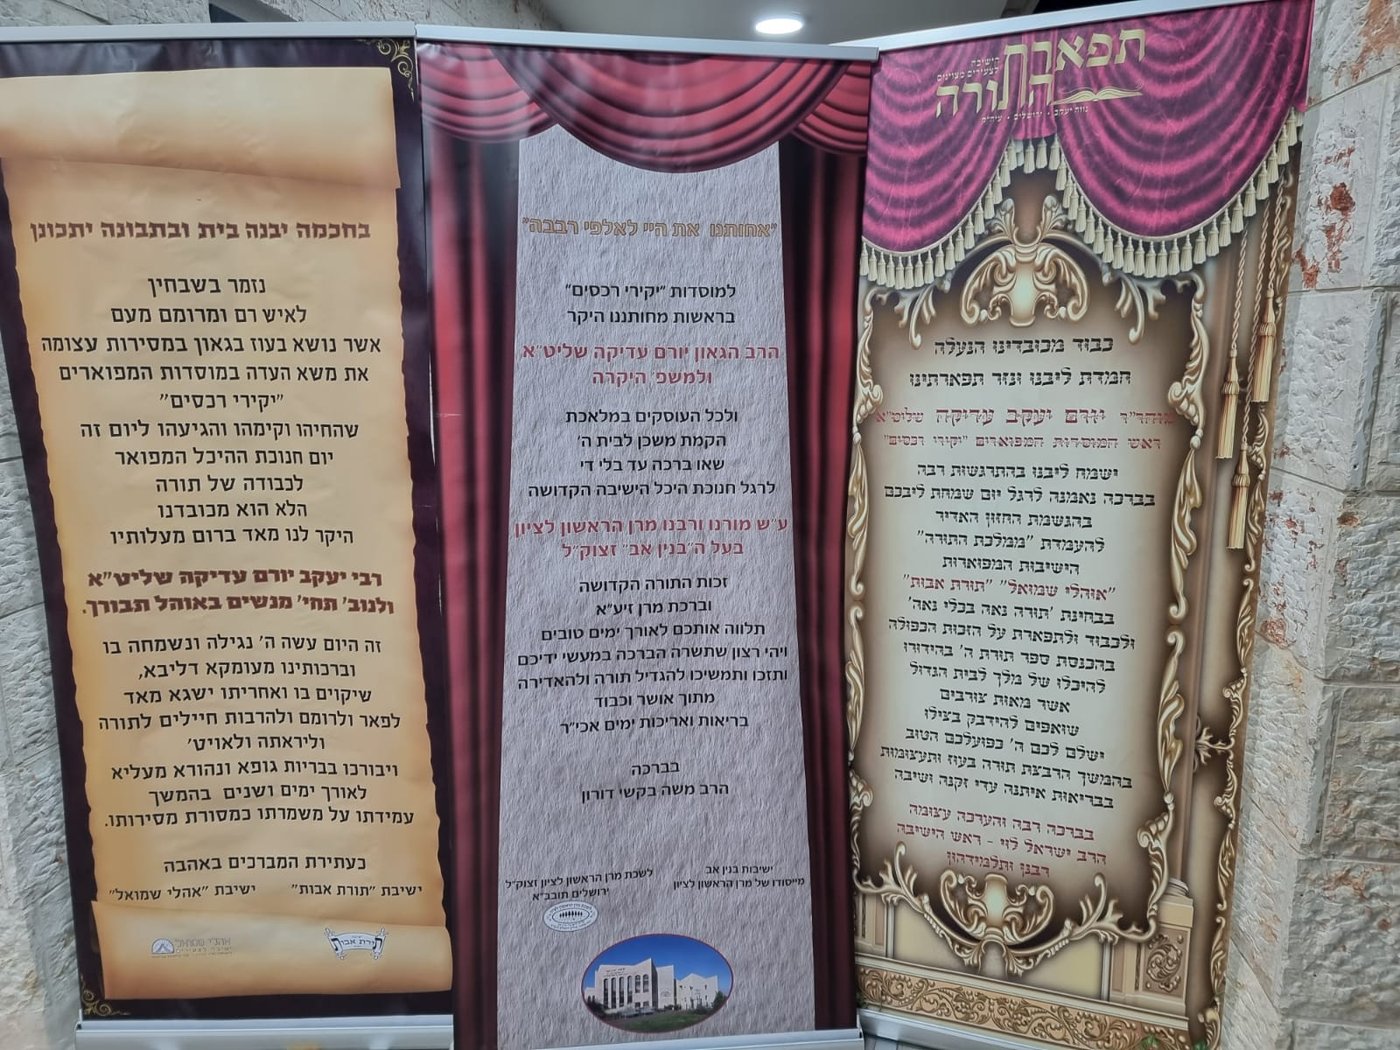 בחכמה יבנה בית ובתבונה יתכונן
נזמר בשבחין
לאיש רם ומרומם מעם
אשר נושא בעוז בגאון במסירות עצומה
את משא העדה במוסדות המפוארים
"יקירי רכסים"
שהחיהו וקימהו והגיעהו ליום זה
יום חנוכת ההיכל המפואר
לכבודה של תורה
הלא הוא מכובדנו
היקר לנו מאד ברום מעלותיו
רבי יעקב יורם עדיקה שליט"א
ולנוב' תחי' מנשים באוהל תבורך.
זה היום עשה ה' נגילה ונשמחה בו
וברכותינו מעומקא דליבא,
שיקוים בו ואחריתו ישגא מאד
לפאר ולרומם ולהרבות חיילים לתורה
וליראתה ולאויט'
ויבורכו בבריות גופא ונהורא מעליא
לאורך ימים ושנים בהמשך
עמידתו על משמרתו כמסורת מסירותו.
כעתירת המברכים באהבה
ישיבת "תורת אבות" ישיבת "אהלי שמואל"
תורת אבות
אהלי שמואל
"אחותנו את היי לאלפי רבבה"
למוסדות "יקירי רכסים"
בראשות מחותננו היקר
הרב הגאון יורם עדיקה שליט"א
ולמשפ' היקרה
ולכל העוסקים במלאכת
הקמת משכן לבית ה'
שאו ברכה עד בלי די
לרגל חנוכת היכל הישיבה הקדושה
ע"ש מורנו ורבנו מרן הראשון לציון
בעל ה"בנין אב" זצוק"ל
זכות התורה הקדושה
וברכת מרן זיע"א
תלווה אותכם לאורך ימים טובים
ויהי רצון שתשרה הברכה במעשי ידיכם
ותזכו ותמשיכו להגדיל תורה ולהאדירה
מתוך אושר וכבוד
בריאות ואריכות ימים אכי"ר
בברכה
הרב משה בקשי דורון
ישיבות בנין אב
מייסודו של מרן הראשון לציון
לשכת מרן הראשון לציון זצוק"ל
ירושלים תובב"א
תפארת
התורה
ישיבה
לצעירים מצוינים
נווה יעקב • ירושלים • עיה"ק
כבוד מכובדינו הנעלה
חמדת ליבנו ונזר תפארתינו
מוהר"ר יורם יעקב עדיקה שליט"א
ראש המוסדות המפוארים "יקירי רכסים"
ישמח ליבנו בהתרגשות רבה
בברכה נאמנה לרגל יום שמחת ליבכם
בהגשמת החזון האדיר
להעמדת "ממלכת התורה"
הישיבות המפוארות
"אוהלי שמואל" "תורת אבות"
בבחינת 'תורה נאה בכלי נאה'
ולכבוד ולתפארת על הזכות הכפולה
בהכנסת ספר תורת ה' בהידורו
להיכלו של מלך לבית הגדול
אשר מאות צורבים
שואפים להידבק בצילו
ישלם לכם ה' כפועלכם הטוב
בהמשך הרבצת תורה בעוז ותעצומות
בבריאות איתנה עדי זקנה ושיבה
בברכה רבה והערכה עצומה
הרב ישראל לוי - ראש הישיבה
רבנן ותלמידהון